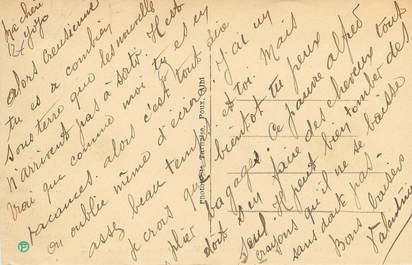 Mr cher
Zozo
alors creusienne
tu es à combien
sous terre que les nouvelles
n'arrivent pas à sortir. Il est
vrai que comme moi tu es en
vacances. alors c'est tout dire
on oublie même d'écrire. J'ai eu
assez beau temps et toi. Mais
je crois que bientôt tu peux
plier bagages. Ce pauvre alfred
doit s'en faire des cheveux tout
seul. Il peut bien tomber des
crayons qu'il ne se baisse
sans doute pas.
Bons baisers
Valentine